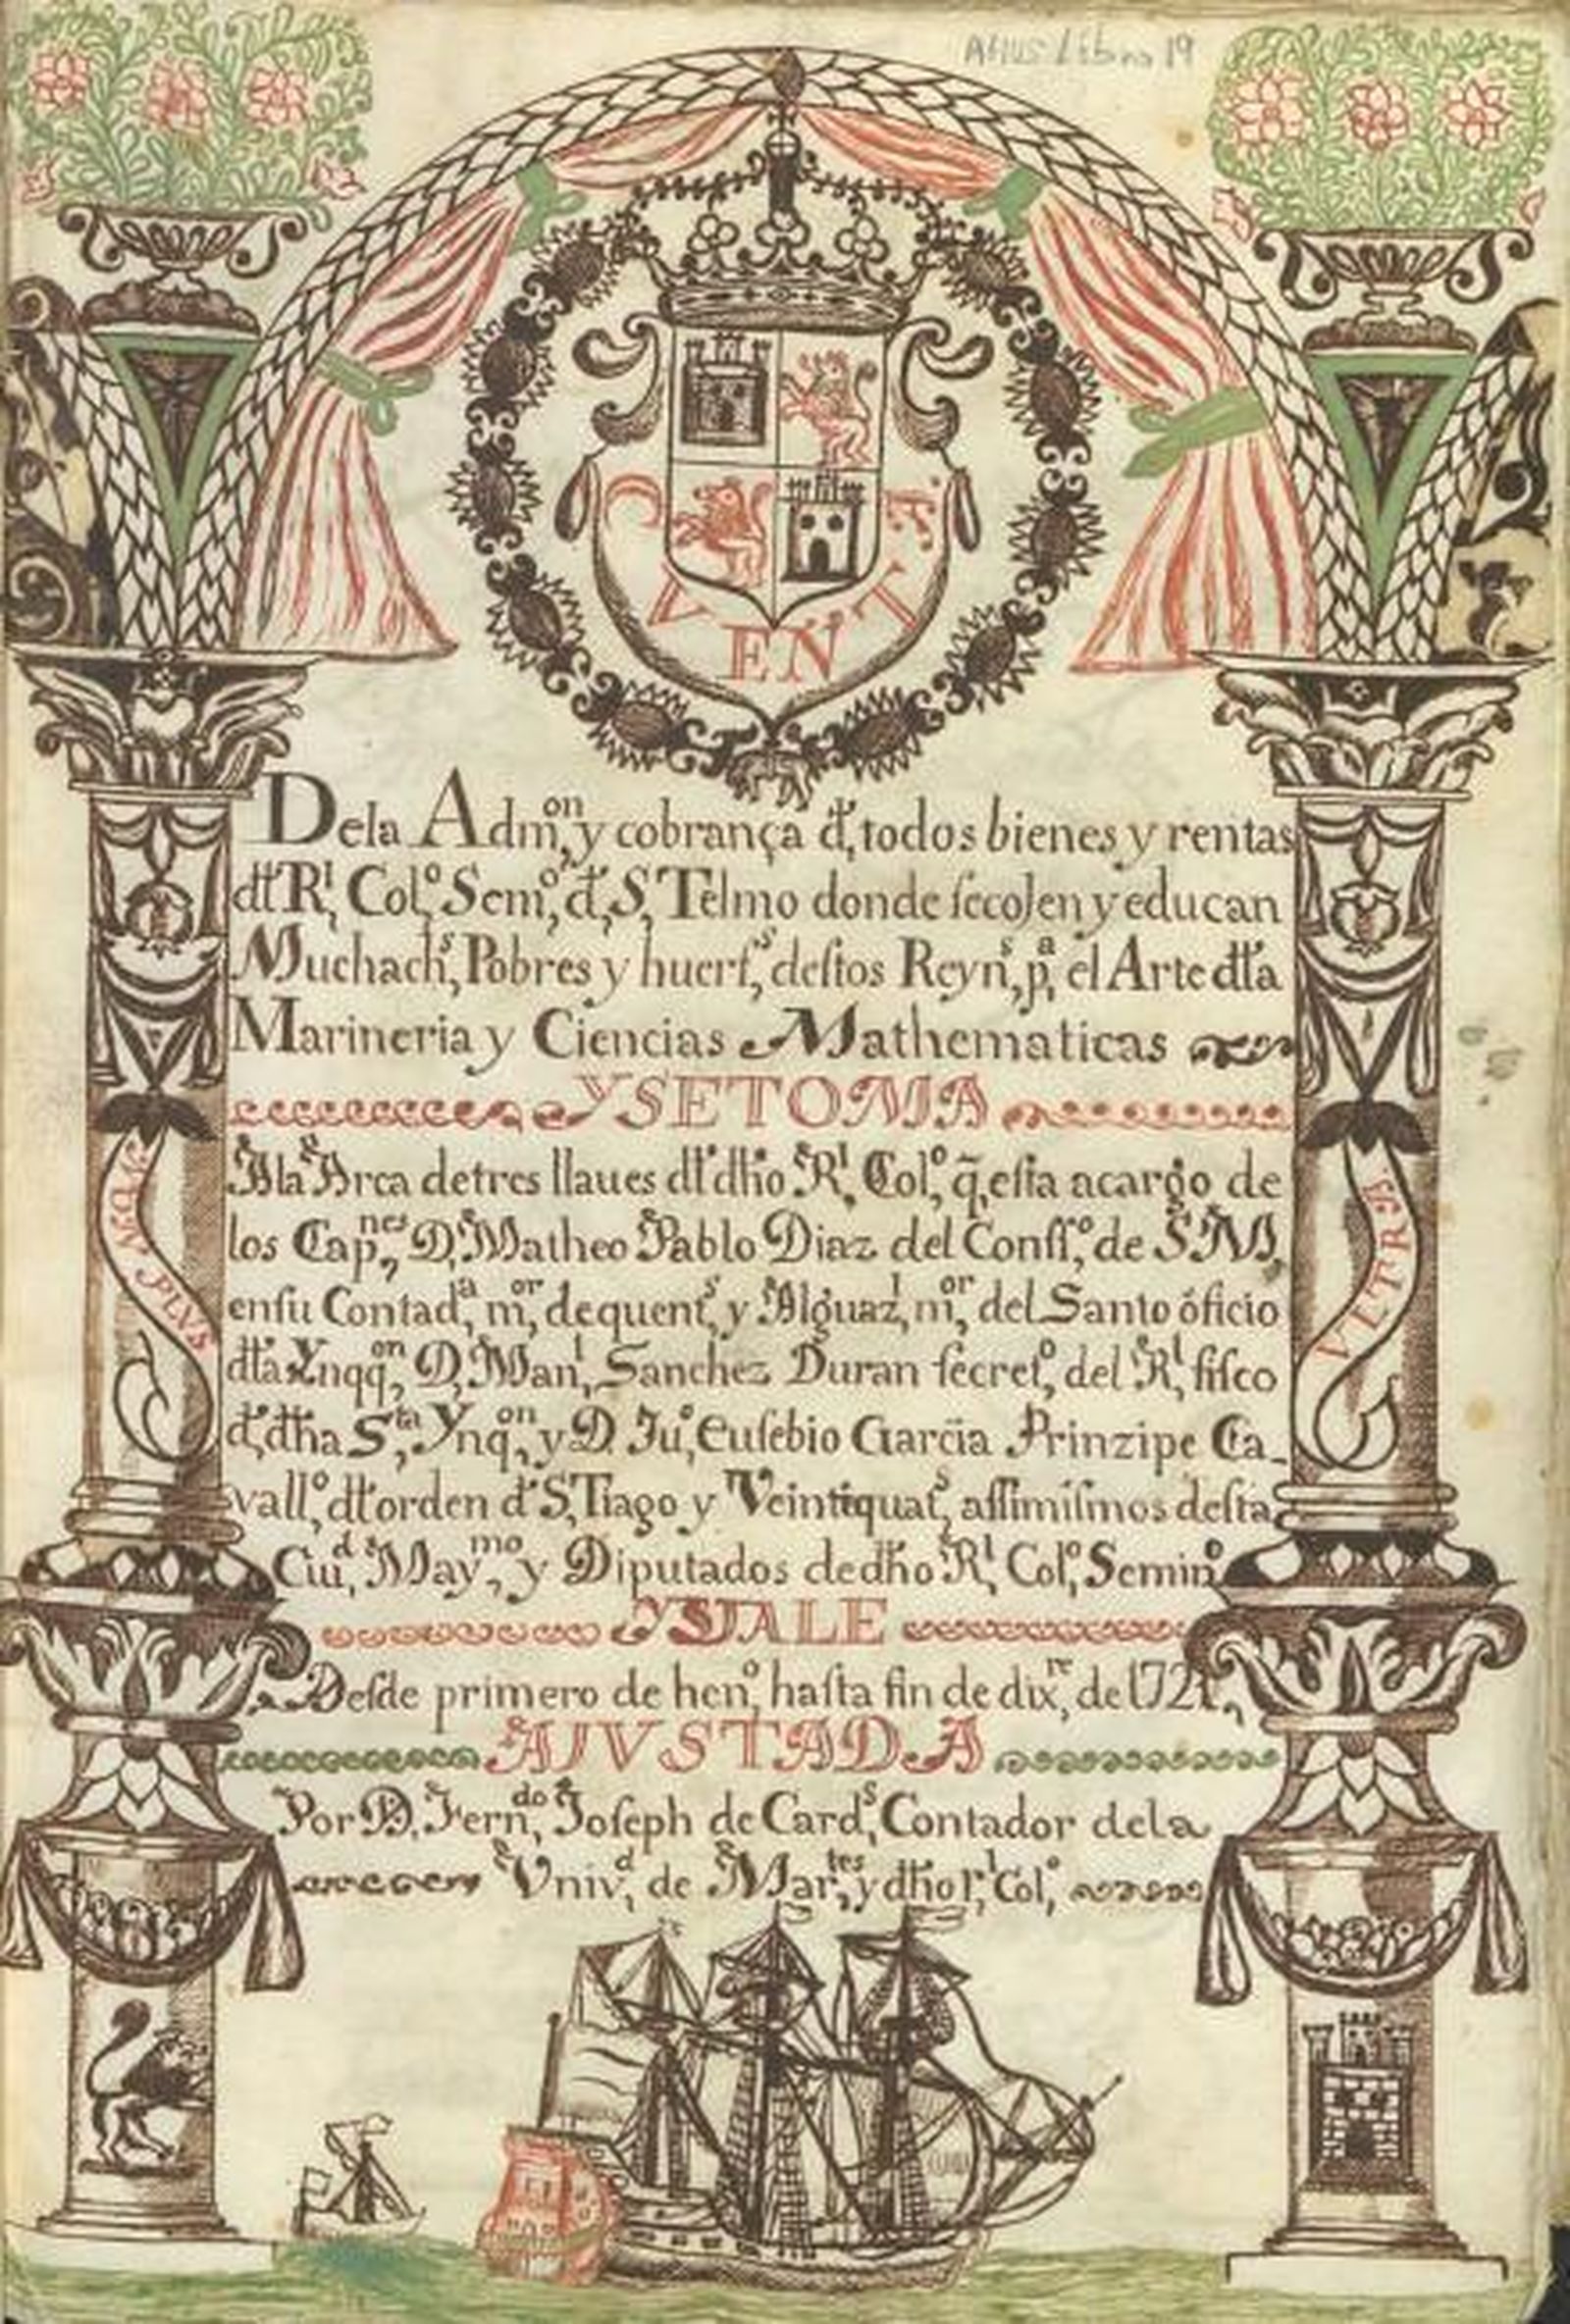 AHUS Libro 19
CVENTA
Dela Admon, y cobrança d, todos bienes y rentas
dl Rl, Colo, Semo, d, S, Telmo donde secoJen y educan
Muchachs, Pobres y huerfs, destos Reyns, pa, el Arte dla
Marineria y Ciencias Mathematicas
YSETOMA
Ala Arca detres llaues dl dho Rl, Colo, q, esta acargo de
los Capnes, D, Matheo Pablo Diaz del Consso, de S, M,
ensu Contada, mor, dequents, y Alguazl, mor, del Santo óficio
dla Ynqqon, D, Manl, Sanchez Duran secreto, del Rl, fisco
d, dha Sta, Ynqon, y D. Juo, Eusebio Garcia Prinzipe Ca-
vallo, dl orden d S, Tiago y Veintiquats, assimismos desta
Ciud, Maymo, y Diputados dedho Rl, Colo, Semino
YSVALE
Desde primero de heno, hasta fin de dixre, de 1721,
AJVSTADA
Por D, Ferndo, Joseph de Cards, Contador dela
Vnivd, de Martes, y dho rl, Colo,
NON PLVS
VLTRA